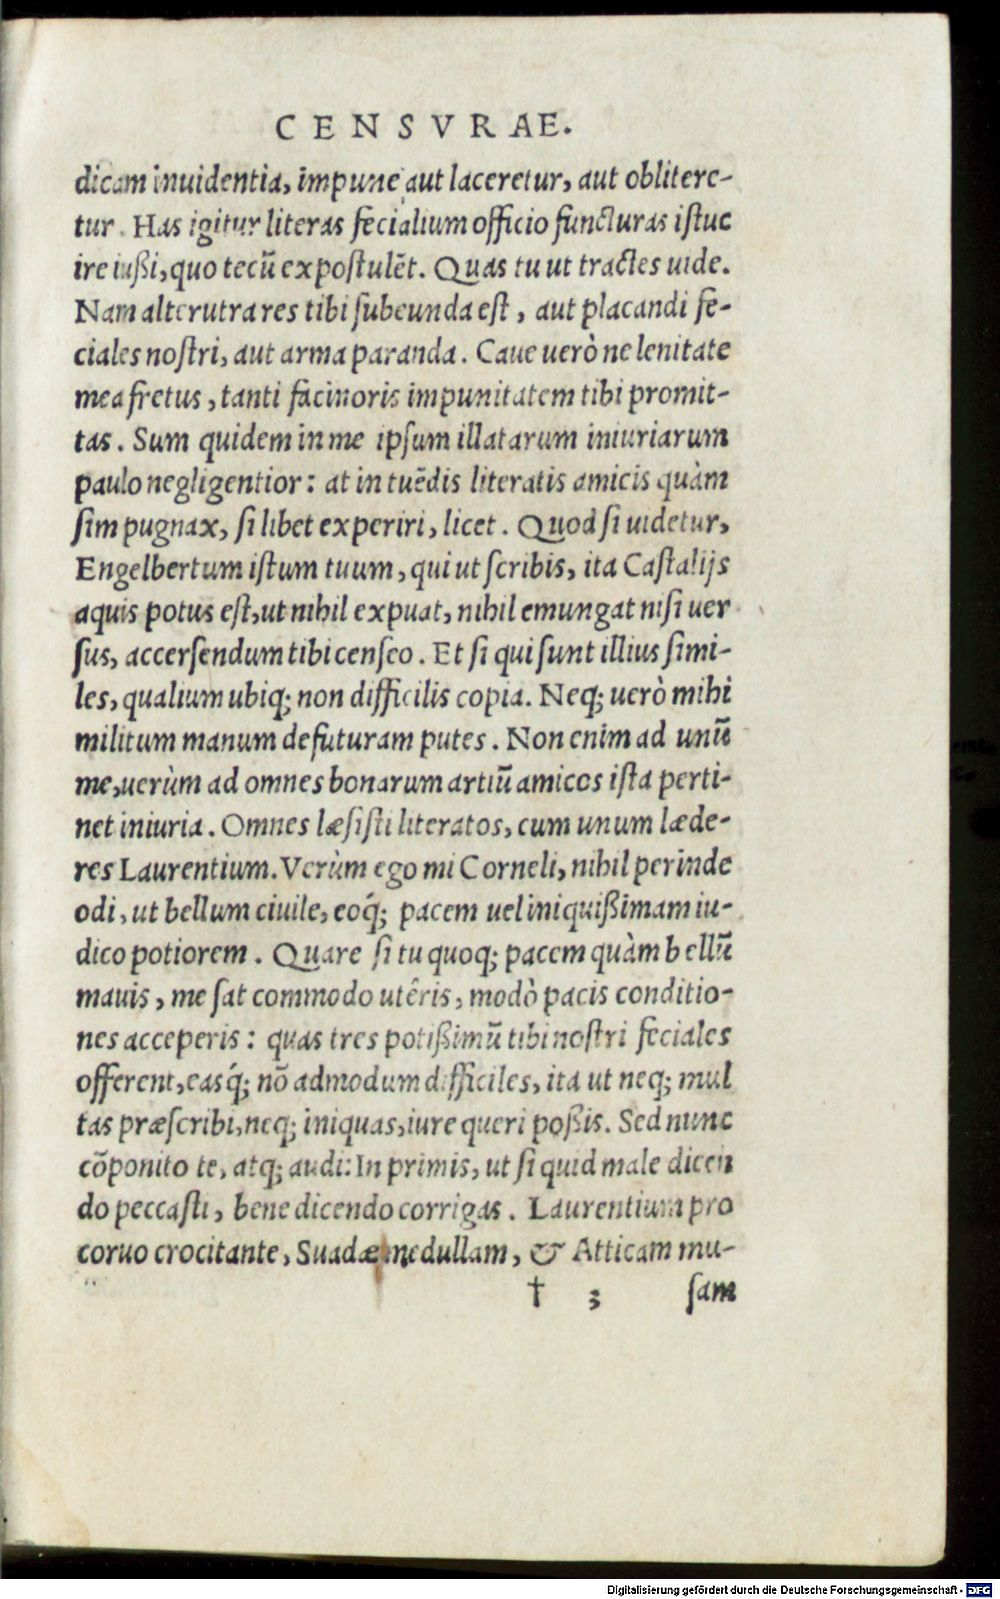 CENSVRAE.
dicam inuidentia, impune aut laceretur, aut oblitere-
tur. Has igitur literas fecialium officio functuras istuc
ire iußi, quo tecū expostulēt. Quas tu ut tractes uide.
Nam alterutra res tibi subeunda est, aut placandi fe-
ciales nostri, aut arma paranda. Caue uerò ne lenitate
mea fretus, tanti facinoris impunitatem tibi promit-
tas. Sum quidem in me ipsum illatarum iniuriarum
paulo negligentior: at in tuēdis literatis amicis quàm
sim pugnax, si libet experiri, licet. Quod si uidetur,
Engelbertum istum tuum, qui ut scribis, ita Castalijs
aquis potus est, ut nihil expuat, nihil emungat nisi uer
sus, accersendum tibi censeo. Et si qui sunt illius simi-
les, qualium ubiq; non difficilis copia. Neq; uerò mihi
militum manum defuturam putes. Non enim ad unū
me, uerùm ad omnes bonarum artiū amicos ista perti-
net iniuria. Omnes læsisti literatos, cum unum læde-
res Laurentium. Verùm ego mi Corneli, nihil perinde
odi, ut bellum ciuile, eoq́; pacem uel iniquißimam iu-
dico potiorem. Quare si tu quoq; pacem quàm bellū
mauis, me sat commodo utêris, modò pacis conditio-
nes acceperis: quas tres potißimū tibi nostri feciales
offerent, easq́; nō admodum difficiles, ita ut neq; mul
tas præscribi, neq; iniquas, iure queri poßis. Sed nunc
cōponito te, atq; audi: In primis, ut si quid male dicen
do peccasti, bene dicendo corrigas. Laurentium pro
coruo crocitante, Suadæ medullam, & Atticam mu-
† 3 sam
Digitalisierung gefördert durch die Deutsche Forschungsgemeinschaft - DFG